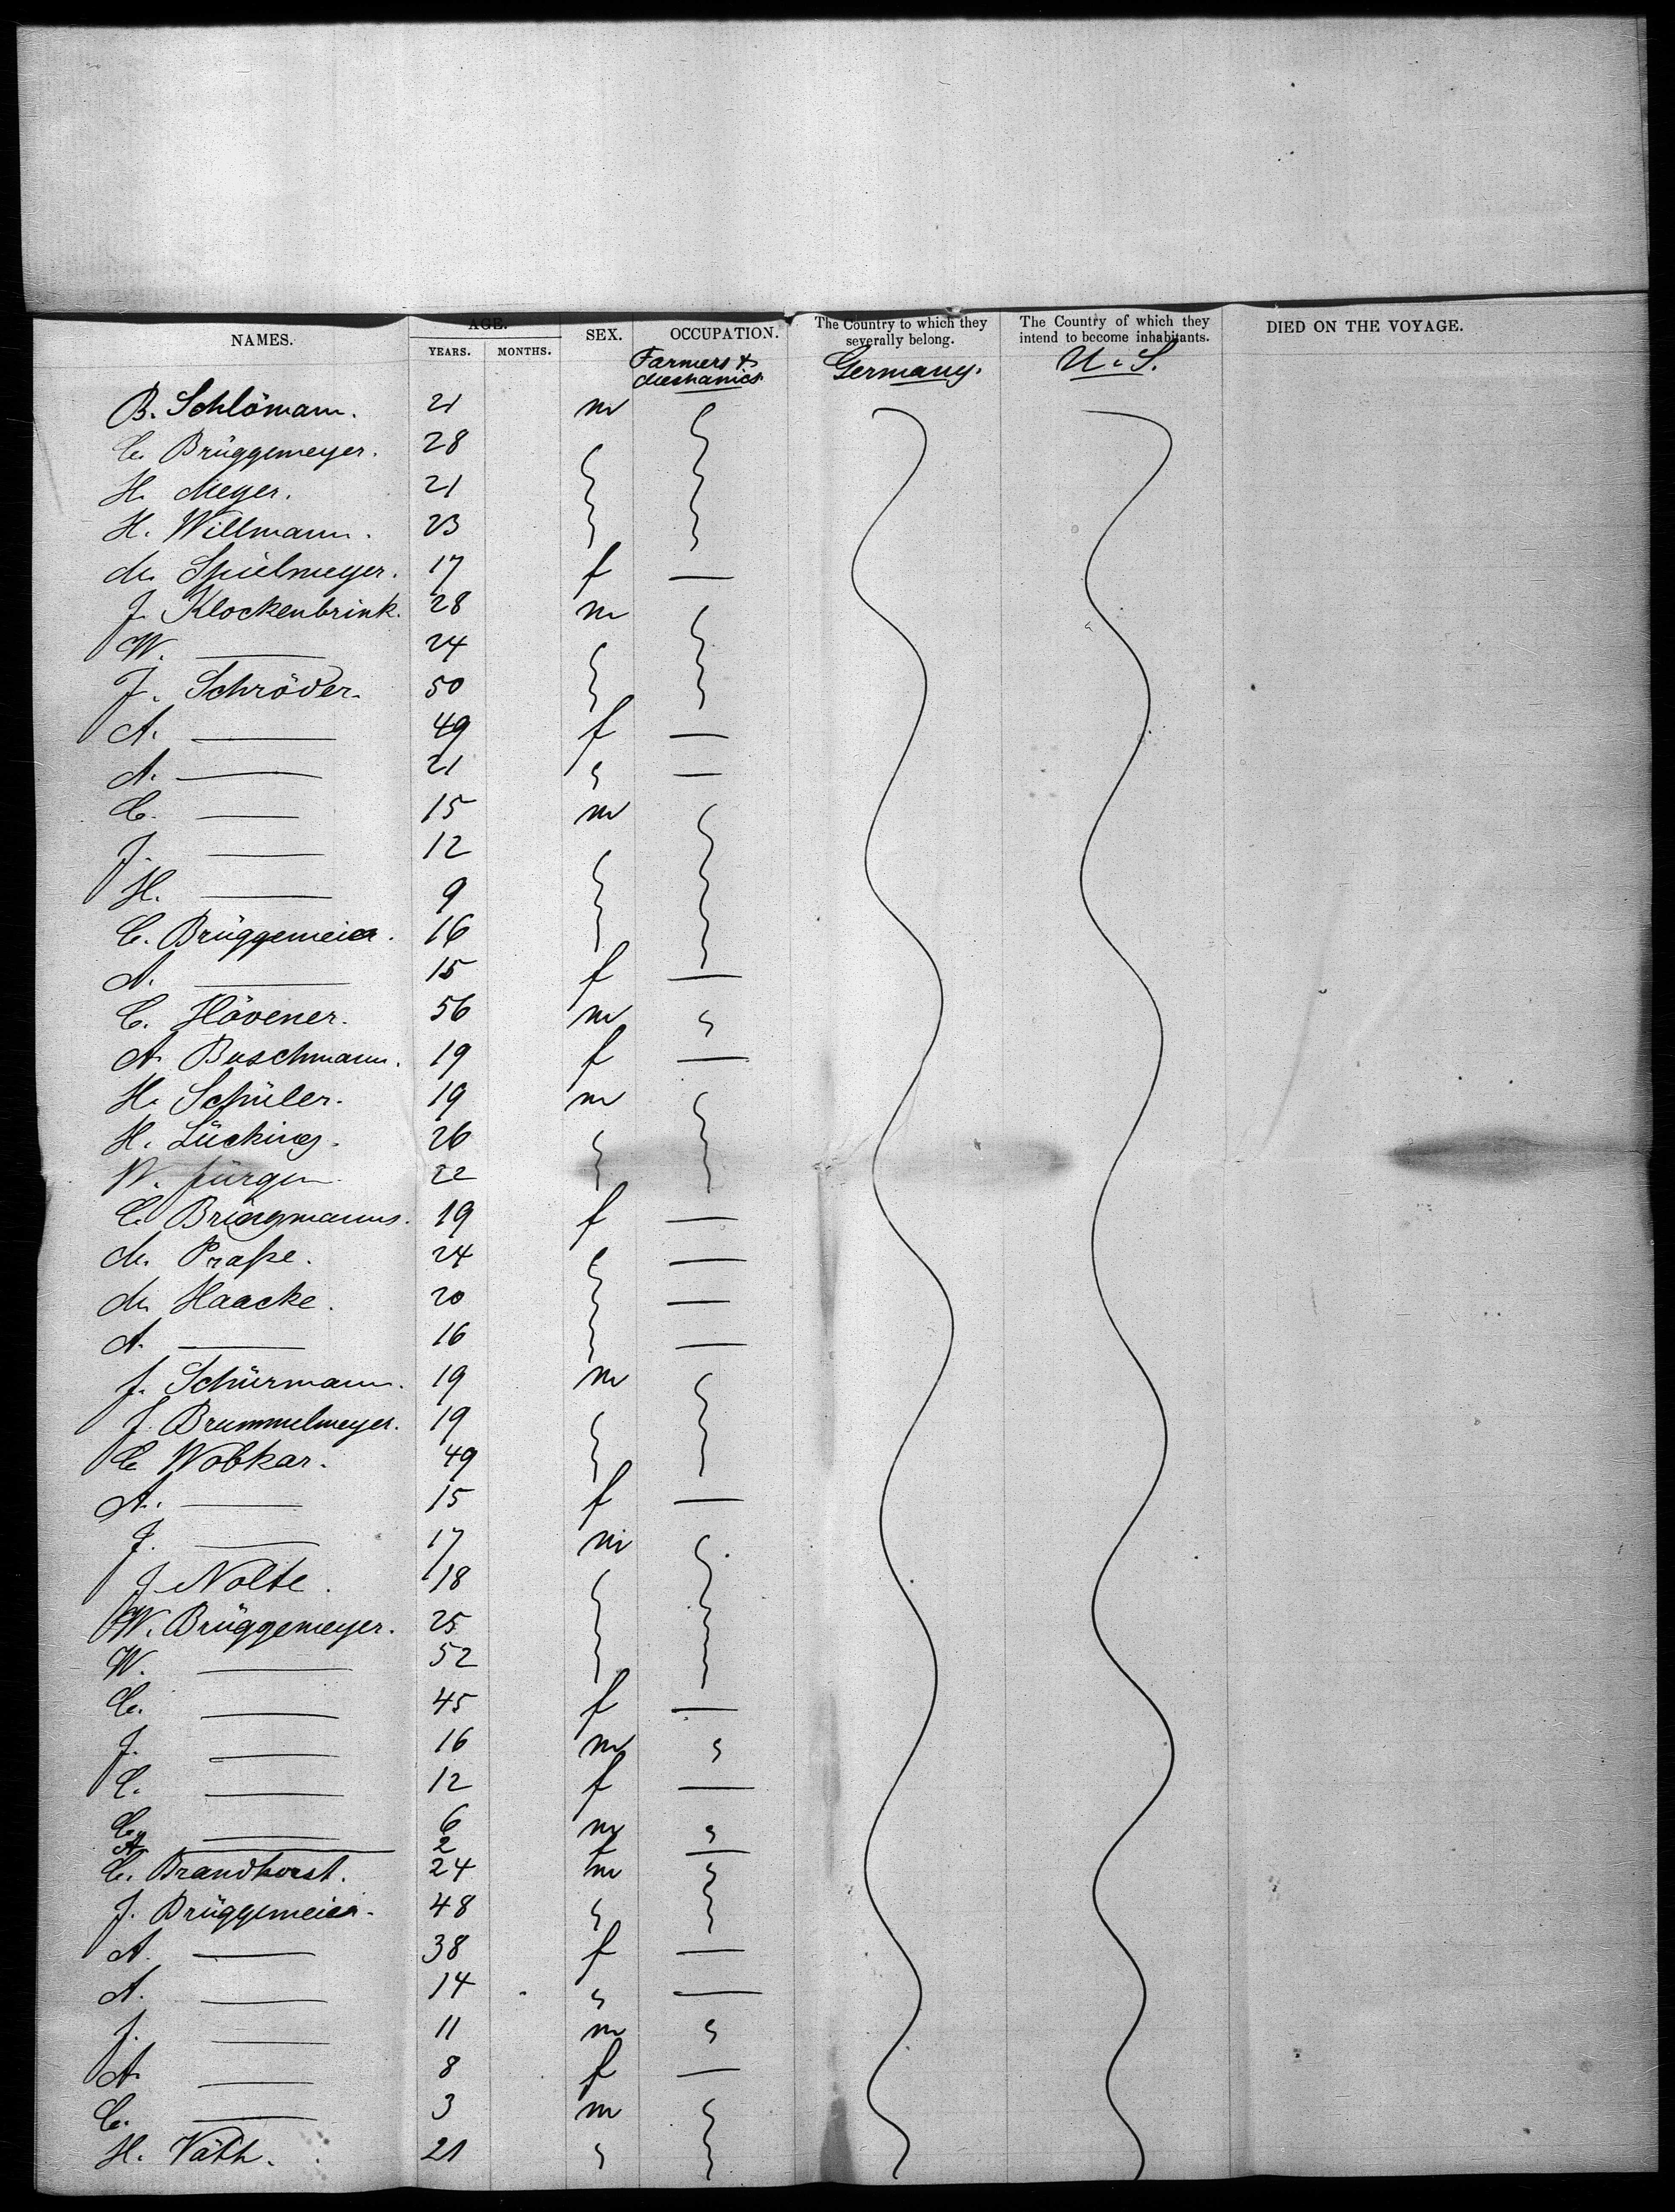 NAMES. AGE. SEX. OCCUPATION. The Country to which they severally belong. The Country of which they intend to become inhabitants. DIED ON THE VOYAGE.
YEARS. MONTHS.
Farmers & Mechanics. Germany. U. S.
B. Schlömann. 21 m
C. Brüggemeyer. 28
H. Meyer. 21
H. Willmann. 23
M. Spielmeyer. 17 f —
J. Klockenbrink. 28 m
W. — 24
J. Schröder. 50
A. — 49 f —
A. — 21 —
C. — 15 m
J. — 12
H. — 9
C. Brüggemeier. 16
A. — 15 f —
C. Hövener. 56 m
A. Buschmann. 19 f —
H. Schüler. 19 m
H. Lücking. 26
W. Jürgen. 22
C. Bringmanns. 19 f —
M. Praße. 24 —
M. Haacke. 20 —
A. — 16 —
J. Schürmann. 19 m
J. Brummelmeyer. 19
C. Wobkar. 49
A. — 15 f —
J. — 17 m
J. Nolte. 18
W. Brüggemeyer. 25
W. — 52
C. — 45 f —
J. — 16 m
C. — 12 f —
C. — 6 m
A. — 2 f —
C. Brandhorst. 24 m
J. Brüggemeier. 48
A. — 38 f —
A. — 14 —
J. — 11 m
A. — 8 f —
C. — 3 m
H. Väth. 21